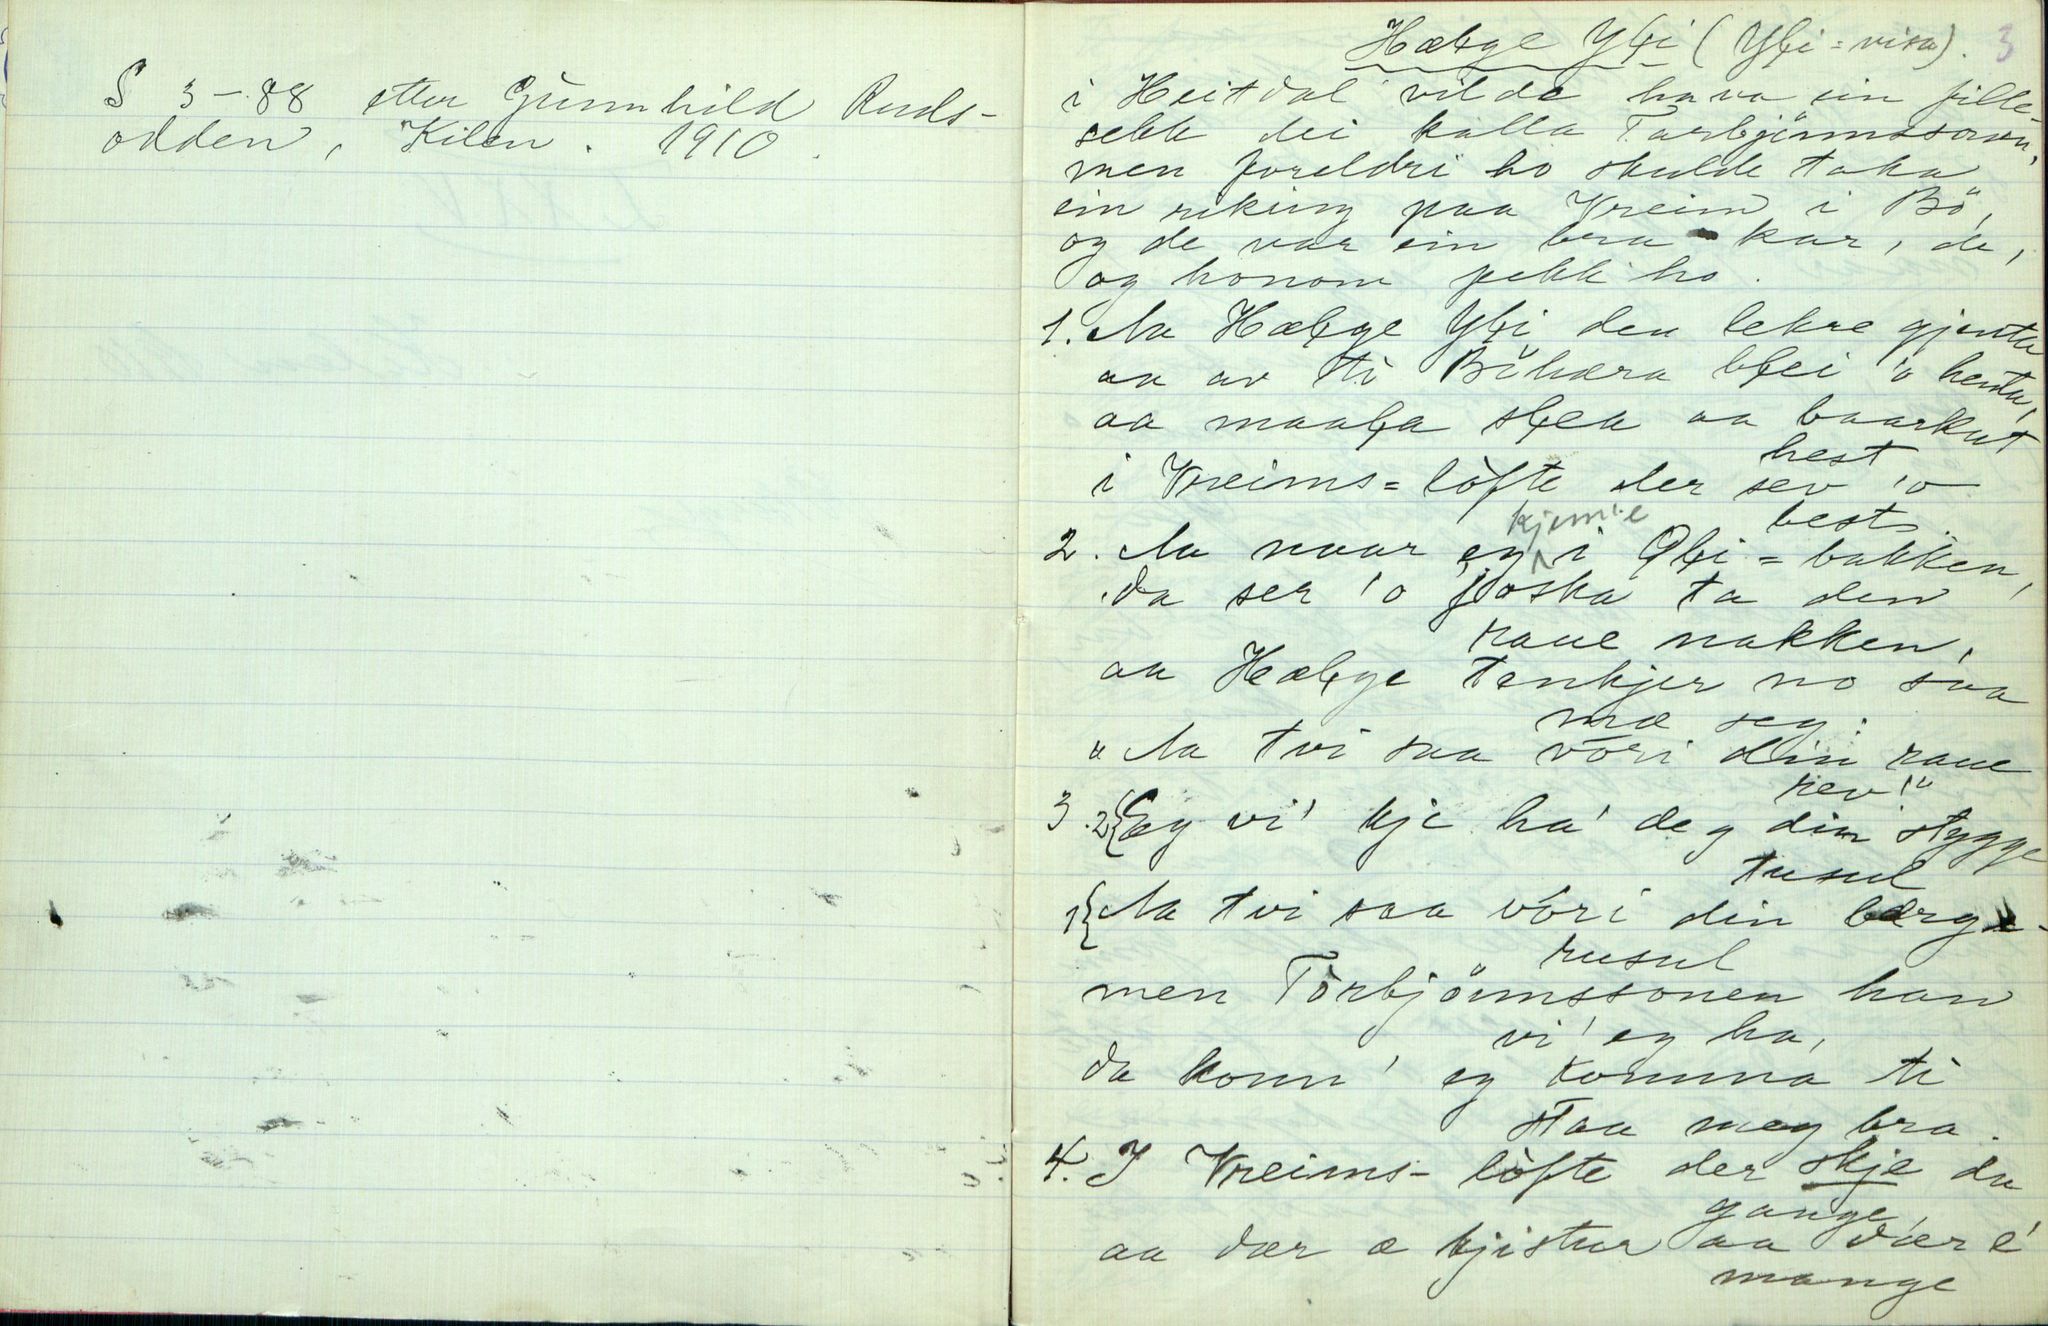 S 3-88 etter Gunnhild Ruds-
odden, Kilen. 1910.
3
Hæłge Yłi (Yłi=visa).
i Heitdal vilde hava ein fille-
sekk dei kalla Torbjörnssonen,
men foreldri ho skulde taka
ein riking paa Vreim i Bö,
og de var ein bra kar, de,
og honom fekk ho.
1. Aa Hæłge Yłi den lekre gjenta
aa av ti Böhæra błei 'o henta,
aa maała słea aa baarkut
hest
i Vreims=lofte der sev 'o
best.
2. Aa naar eg kjem'e i Ołi=bakken,
da ser 'o joska ta den
raue nakken,
aa Hæłge tenkjer no saa
mæ seg:
"Aa tvi saa vori din raue
rev!"
3. 2{Eg vi' kje ha' deg din stygge
tusul
1{Aa tvi saa vori din bærge-
rusul
men Torbjörnssonen han
vi' eg ha,
da konn' eg komma ti
staa meg bra.
4. I Vreims-lofte der skje du
gange
aa dær æ kjistur aa dær e'
mange